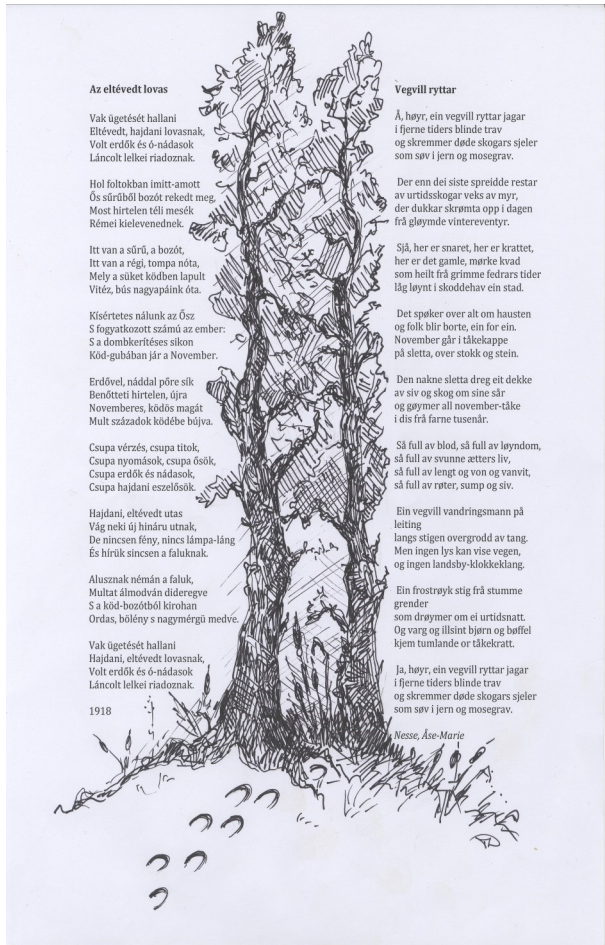 Az eltévedt lovas

Vak ügetését hallani
Eltévedt, hajdani lovasnak,
Volt erdők és ó-nádasok
Láncolt lelkei riadoznak.

Hol foltokban imitt-amott
Ős sűrűből bozót rekedt meg,
Most hirtelen téli mesék
Rémei kielevenednek.

Itt van a sűrű, a bozót,
Itt van a régi, tompa nóta,
Mely a süket ködben lapult
Vitéz, bús nagyapáink óta.

Kísértetes nálunk az Ősz
S fogyatkozott számú az ember:
S a dombkerítéses síkon
Köd-gubában jár a November.

Erdővel, náddal pőre sík
Benőtteti hirtelen, újra
Novemberes, ködös magát
Mult századok ködébe bújva.

Csupa vérzés, csupa titok,
Csupa nyomások, csupa ősök,
Csupa erdők és nádasok,
Csupa hajdani eszelősök.

Hajdani, eltévedt utas
Vág neki új hináru utnak,
De nincsen fény, nincs lámpa-láng
És hírük sincsen a faluknak.

Alusznak némán a faluk,
Multat álmodván dideregve
S a köd-bozótból kirohan
Ordas, bölény s nagymérgü medve.

Vak ügetését hallani
Hajdani, eltévedt lovasnak,
Volt erdők és ó-nádasok
Láncolt lelkei riadoznak.

1918

Vegvill ryttar

Å, høyr, ein vegvill ryttar jagar
i fjerne tiders blinde trav
og skremmer døde skogars sjeler
som søv i jern og mosegrav.

Der enn dei siste spreidde restar
av urtidsskogar veks av myr,
der dukkar skrømta opp i dagen
frå gløymde vintereventyr.

Sjå, her er snaret, her er krattet,
her er det gamle, mørke kvad
som heilt frå grimme fedrars tider
låg løynt i skoddehav ein stad.

Det spøker over alt om hausten
og folk blir borte, ein for ein.
November går i tåkekappe
på sletta, over stokk og stein.

Den nakne sletta dreg eit dekke
av siv og skog om sine sår
og gøymer all november-tåke
i dis frå farne tusenår.

Så full av blod, så full av løyndom,
så full av svunne ætters liv,
så full av lengt og von og vanvit,
så full av røter, sump og siv.

Ein vegvill vandringsmann på
leiting
langs stigen overgrodd av tang.
Men ingen lys kan vise vegen,
og ingen landsby-klokkeklang.

Ein frostrøyk stig frå stumme
grender
som drøymer om ei urtidsnatt.
Og varg og illsint bjørn og bøffel
kjem tumlande or tåkekratt.

Ja, høyr, ein vegvill ryttar jagar
i fjerne tiders blinde trav
og skremmer døde skogars sjeler
som søv i jern og mosegrav.

Nesse, Åse-Marie